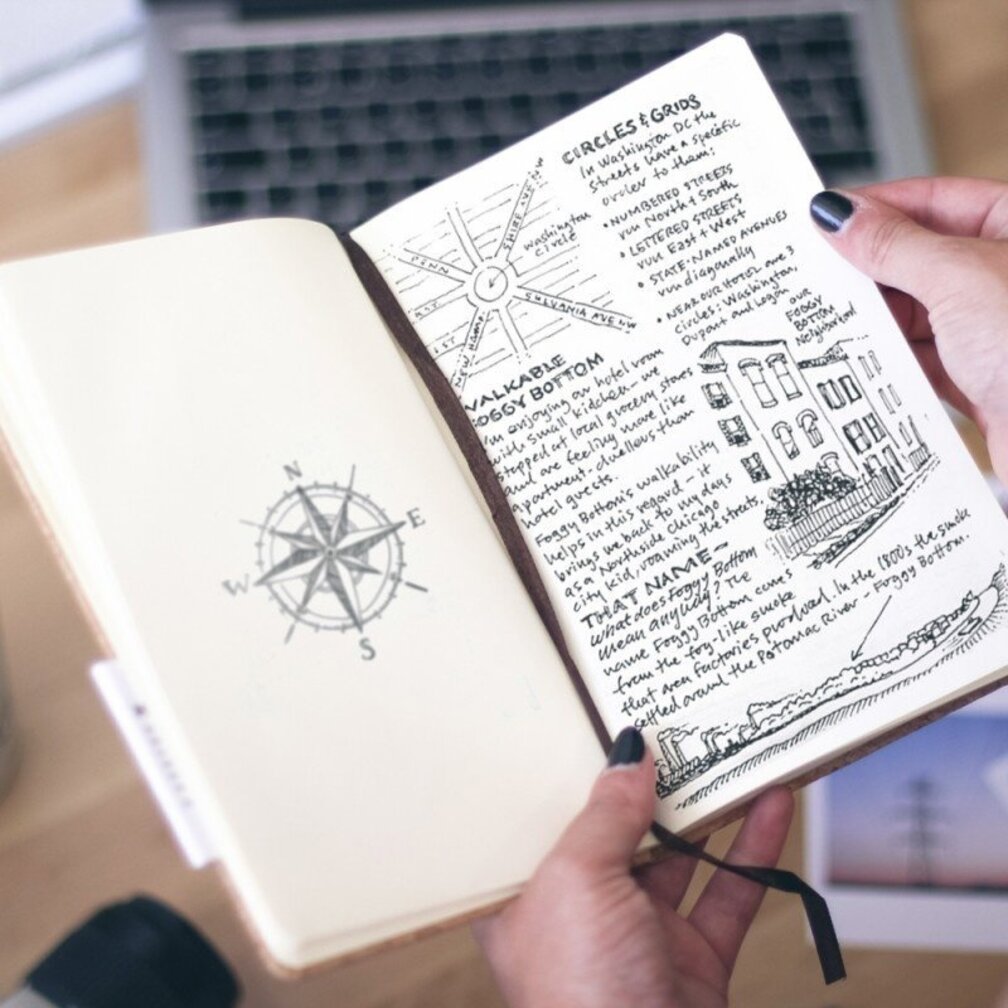 N
E
W
S
CIRCLES & GRIDS
In Washington DC the
streets have a specific
order to them:
• NUMBERED STREETS
run North + South
• LETTERED STREETS
run East + West
• STATE-NAMED AVENUES
run diagonally
• NEAR OUR HOTEL are 3
circles: Washington,
Dupont and Logan
SHIRE AVE NW
Washington
Circle
PENN
SYLVANIA AVE NW
K ST
NEW HAMP
OUR
FOGGY
BOTTOM
Neighborhood
WALKABLE
FOGGY BOTTOM
I'm enjoying our hotel room
with small kitchen - we
stopped at local grocery stores
and are feeling more like
apartment-dwellers than
hotel guests.
Foggy Bottom's walkability
helps in this regard - it
brings me back to my days
as a Northside Chicago
city kid, roaming the streets.
THAT NAME~
What does Foggy Bottom
mean anyway? The
name Foggy Bottom comes
from the fog-like smoke
that area factories produced. In the 1800s the smoke
settled around the Potomac River - Foggy Bottom.